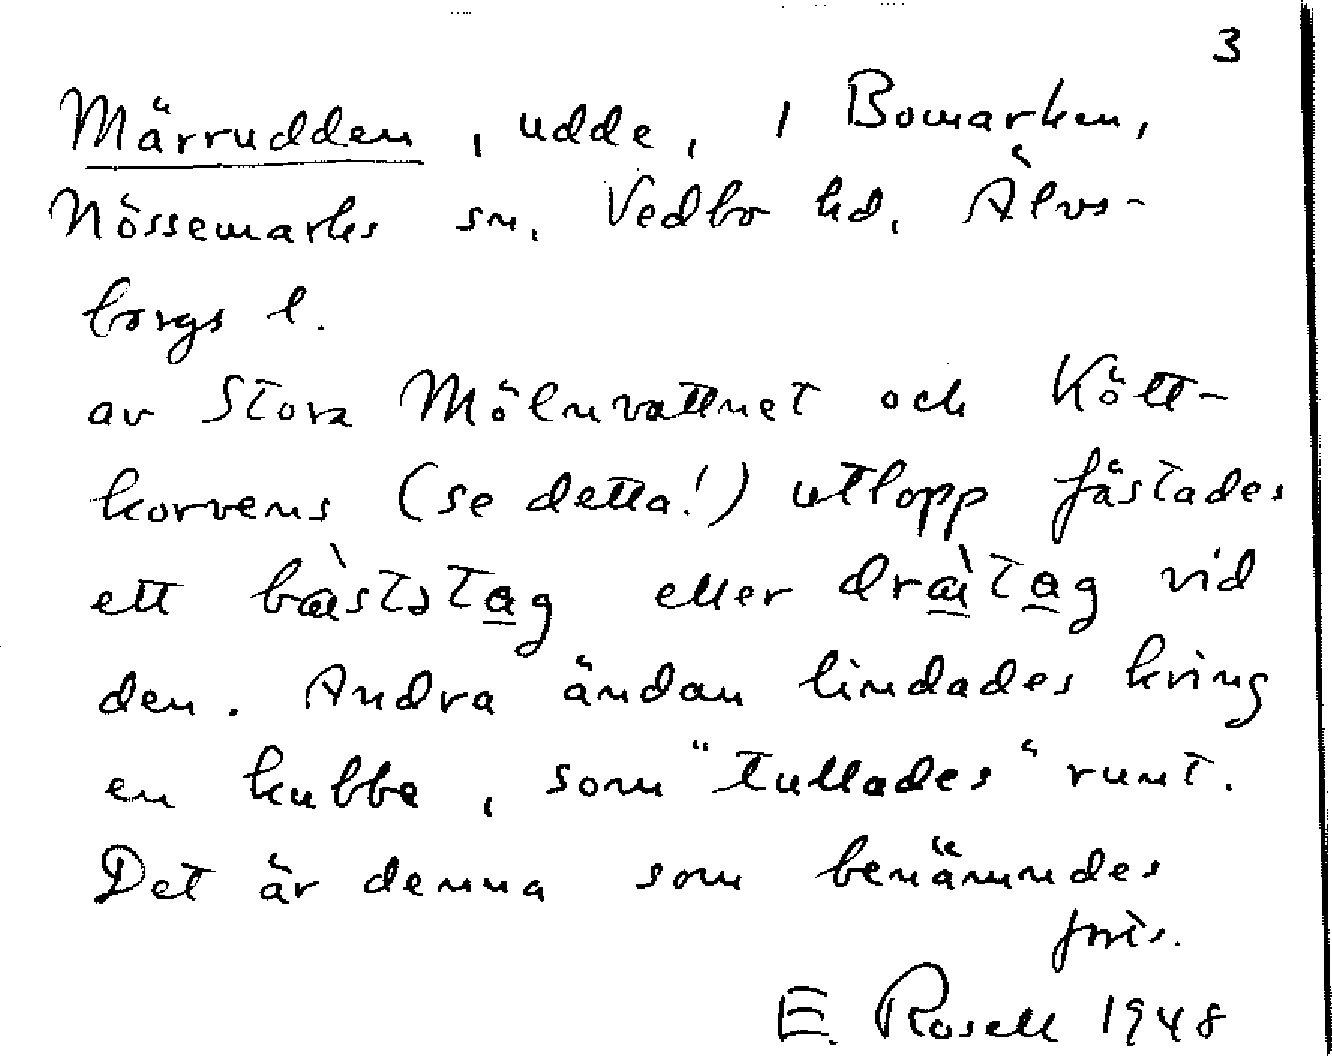 3
Märrudden, udde, i Bomarken,
Nössemarks sn. Vedbo hd. Älvs-
borgs l.
av Stora Mölnvattnet och Kött-
korvens (se detta!) utlopp fästades
ett bæ̀ststag eller dræ̀tag vid
den. Andra ändan lindades kring
en kubbe, som "tullades" runt.
Det är denna som benämndes
forts.
E. Rosell 1948